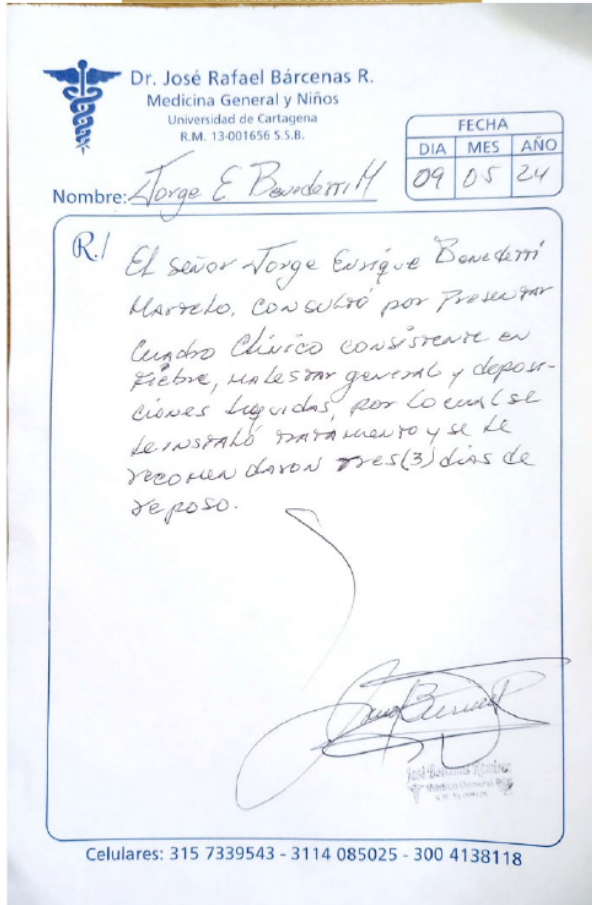 Dr. José Rafael Bárcenas R.
Medicina General y Niños
Universidad de Cartagena
R.M. 13-001656 S.S.B.
FECHA
DIA MES AÑO
09 05 24
Nombre: Jorge E Benedetti M
R./
El señor Jorge Enrique Benedetti
Martelo, consultó por presentar
Cuadro Clínico consistente en
fiebre, malestar general y deposi-
ciones liquidas, por lo cual se
le instaló tratamiento y se le
recomendaron tres (3) dias de
reposo.
José Bárcenas Ramírez
Médico General
Celulares: 315 7339543 - 3114 085025 - 300 4138118